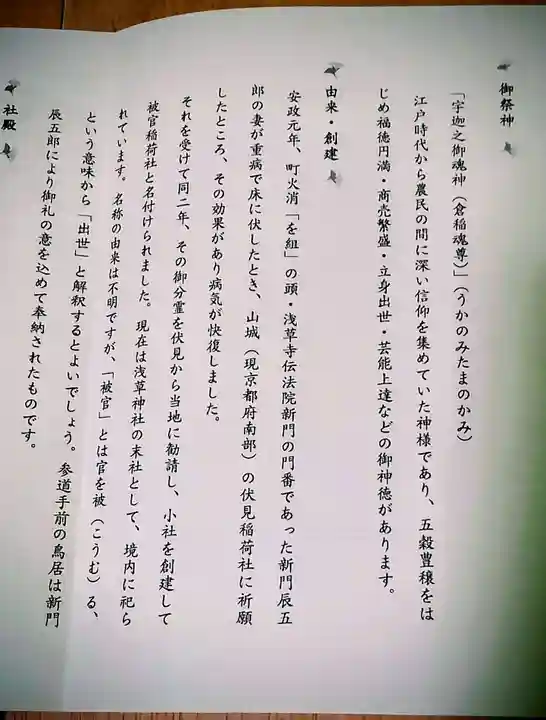 御祭神
「宇迦之御魂神（倉稲魂尊）」（うかのみたまのかみ）
江戸時代から農民の間に深い信仰を集めていた神様であり、五穀豊穣をは
じめ福徳円満・商売繁盛・立身出世・芸能上達などの御神徳があります。
由来・創建
安政元年、町火消「を組」の頭・浅草寺伝法院新門の門番であった新門辰五
郎の妻が重病で床に伏したとき、山城（現京都府南部）の伏見稲荷社に祈願
したところ、その効果があり病気が快復しました。
それを受けて同二年、その御分霊を伏見から当地に勧請し、小社を創建して
被官稲荷社と名付けられました。現在は浅草神社の末社として、境内に祀ら
れています。名称の由来は不明ですが、「被官」とは官を被（こうむ）る、
という意味から「出世」と解釈するとよいでしょう。参道手前の鳥居は新門
辰五郎により御礼の意を込めて奉納されたものです。
社殿